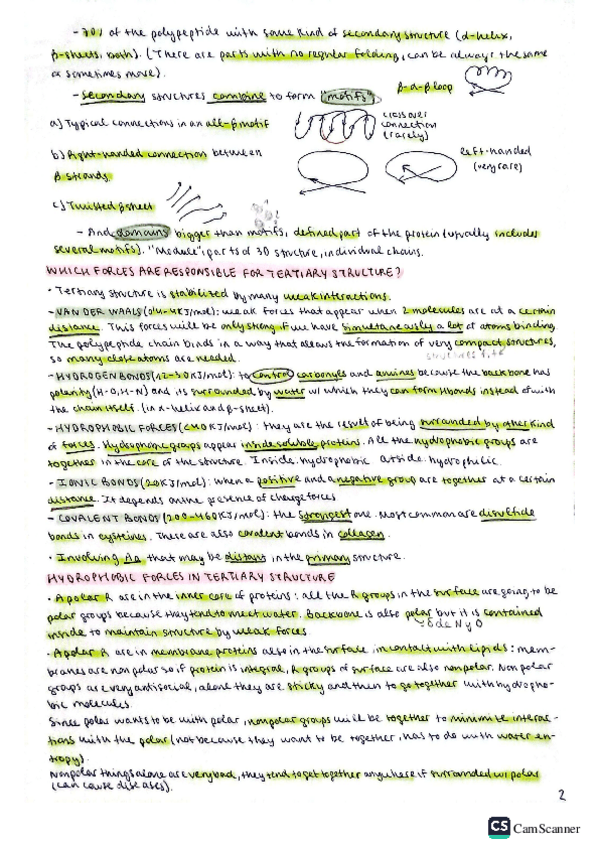 - 70% of the polypeptide with some kind of secondary structure (α-helix,
β-sheets, both). (There are parts with no regular folding, can be always the same
or sometimes move).
- Secondary structures combine to form "motifs"
β-α-β loop
a) Typical connections in an all-β motif
crossover
connection
(rarely)
b) Right-handed connection between
β strands
left-handed
(very rare)
c) Twisted β sheet
- And domains bigger than motifs, defined part of the protein (usually includes
several motifs). "Module", parts of 3D structure, individual chains.
WHICH FORCES ARE RESPONSIBLE FOR TERTIARY STRUCTURE?
· Tertiary structure is stabilized by many weak interactions.
- VAN DER WAALS (0'4-4KJ/mol): weak forces that appear when 2 molecules are at a certain
distance. This forces will be only strong if we have simultaneously a lot of atoms binding.
The polypeptide chain binds in a way that allows the formation of very compact structures,
so many close atoms are needed.
- HYDROGEN BONDS (12-30KJ/mol): to control carbonyls and amines because the backbone has
polarity (H-O, H-N) and its surrounded by water w/ which they can form H bonds instead of with
the chain itself. (in α-helix and β-sheet).
- HYDROPHOBIC FORCES (<40KJ/mol): they are the result of being surrounded by other kind
of forces. Hydrophobic groups appear inside soluble proteins. All the hydrophobic groups are
together in the core of the structure. Inside: hydrophobic outside: hydrophilic.
- IONIC BONDS (20KJ/mol): when a positive and a negative group are together at a certain
distance. It depends on the presence of charge forces
- COVALENT BONDS (200-460KJ/mol): the strongest one. Most common are disulfide
bonds in cysteines. There are also covalent bonds in collagen.
· Involving Aa that may be distant in the primary structure.
HYDROPHOBIC FORCES IN TERTIARY STRUCTURE
· Apolar R are in the inner core of proteins: all the R groups in the surface are going to be
polar groups because they tend to meet water. Backbone is also polar but it is contained
inside to maintain structure by weak forces.
· Apolar R are in membrane proteins also in the surface in contact with lipids: mem-
branes are non polar so if protein is integral, R groups of surface are also nonpolar. Non polar
groups are very antisocial, alone they are sticky and then to go together with hydropho-
bic molecules.
Since polar wants to be with polar, nonpolar groups will be together to minimize interac-
tions with the polar (not because they want to be together, has to do with water en-
tropy).
Nonpolar things alone are very bad, they tend to get together anywhere if surrounded w/ polar
(can cause diseases).
2
CS CamScanner